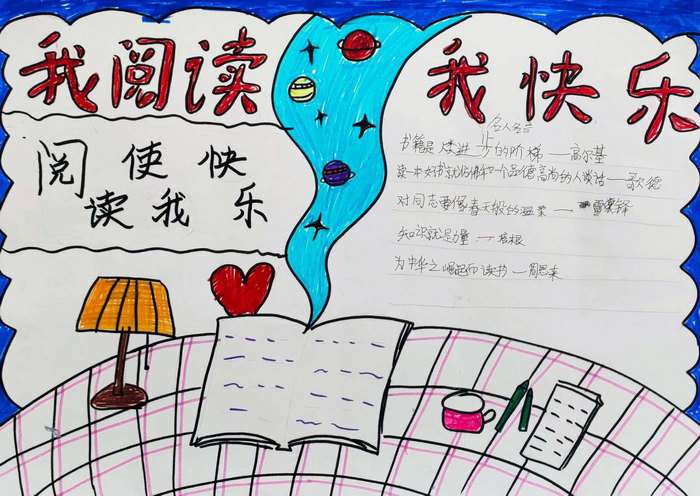 我阅读
我快乐
阅使快
读我乐
名人名言
书籍是人类进步的阶梯——高尔基
读一本好书就仿佛和一个品德高尚的人谈话——歌德
对同志要像春天般的温柔——雷锋
知识就是力量——培根
为中华之崛起而读书——周恩来